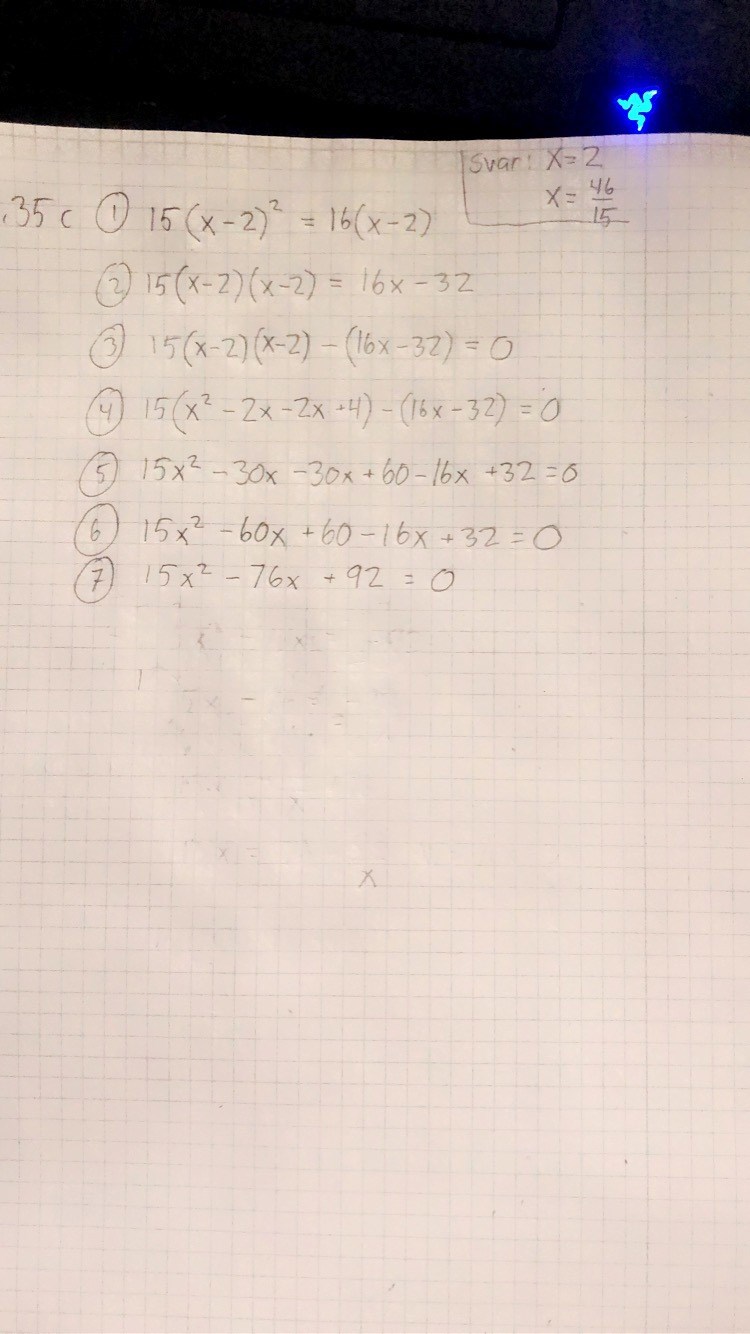 Svar: x=2
x= 46/15
.35 c ① 15(x-2)² = 16(x-2)
② 15(x-2)(x-2) = 16x - 32
③ 15(x-2)(x-2) - (16x-32) = 0
④ 15(x² - 2x - 2x + 4) - (16x - 32) = 0
⑤ 15x² - 30x - 30x + 60 - 16x + 32 = 0
⑥ 15x² - 60x + 60 - 16x + 32 = 0
⑦ 15x² - 76x + 92 = 0
x